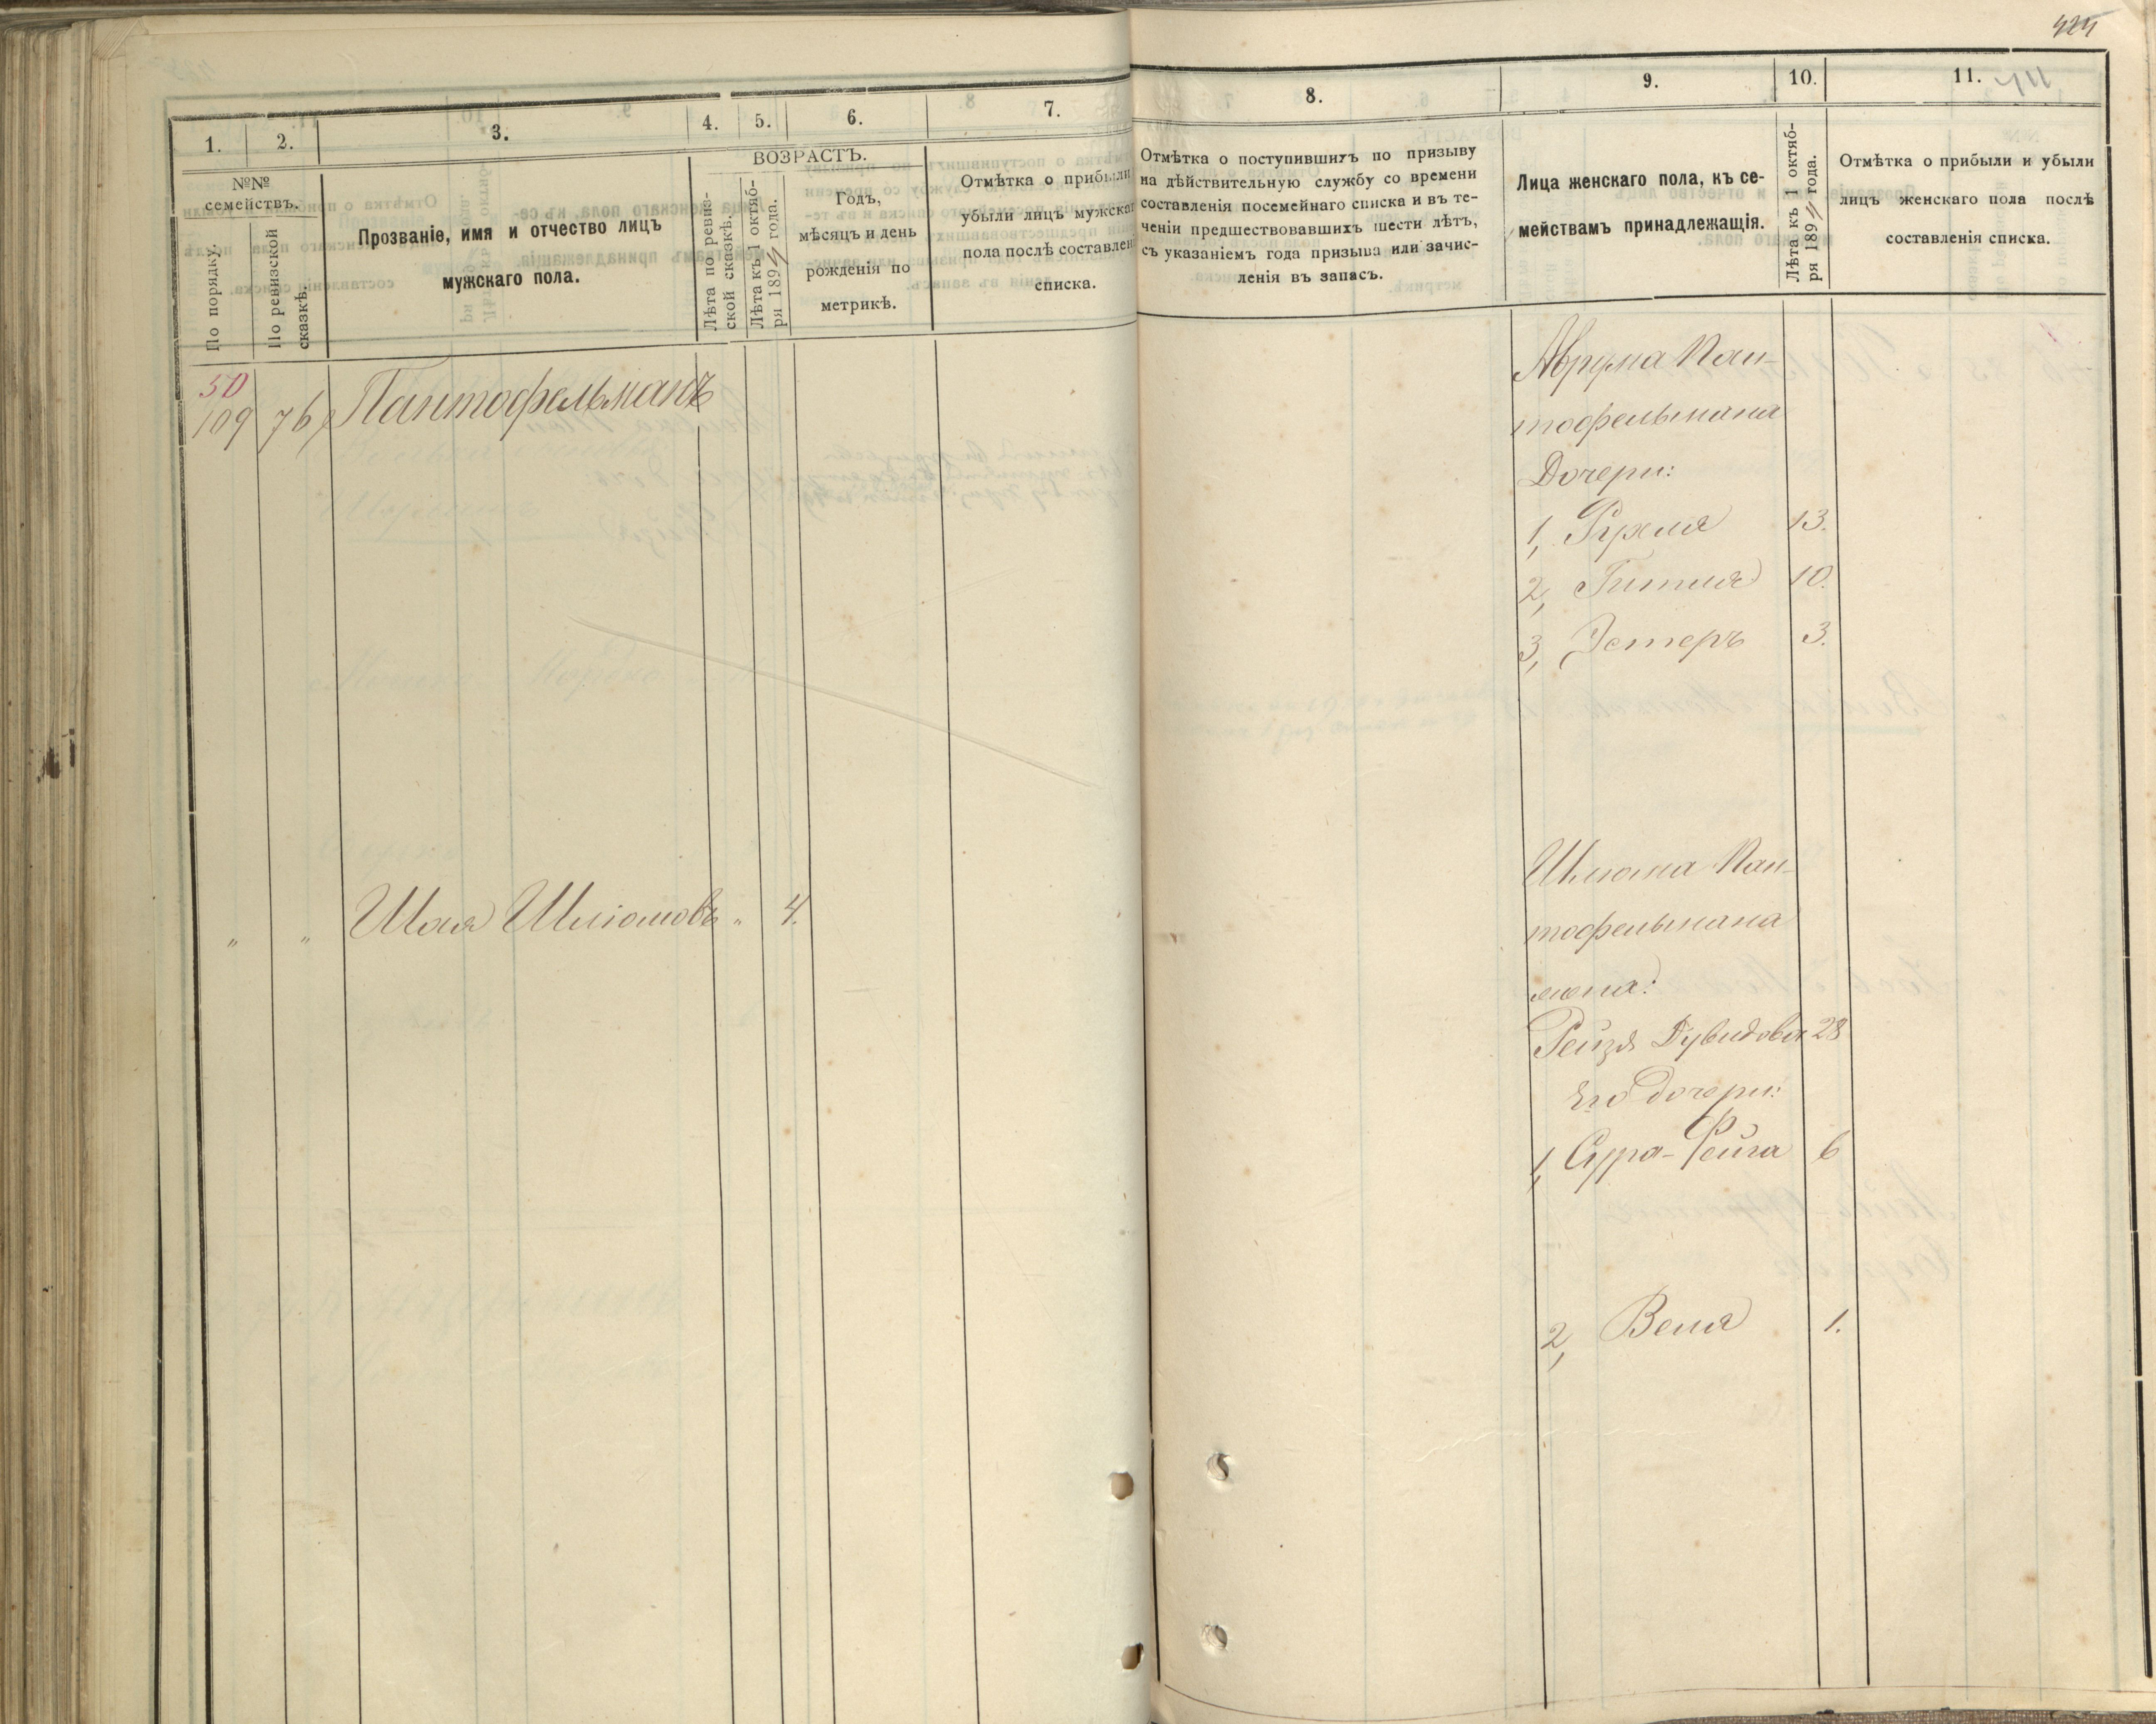 424
1.
2.
3.
4.
5.
6.
7.
№№
семействъ.
По порядку.
По ревизской
сказкѣ.
Прозваніе, имя и отчество лицъ
мужскаго пола.
ВОЗРАСТЪ.
Лѣта по ревиз-
ской сказкѣ.
Лѣта къ 1 октяб-
ря 1894 года.
Годъ,
мѣсяцъ и день
рожденія по
метрикѣ.
Отмѣтка о прибыли
убыли лицъ мужскаг
пола послѣ составлені
списка.
50
109 76 Пантофельманъ
" " Шая Шліомовъ " 4.
8.
9.
10.
11.
Отмѣтка о поступившихъ по призыву
на дѣйствительную службу со времени
составленія посемейнаго списка и въ те-
ченіи предшествовавшихъ шести лѣтъ,
съ указаніемъ года призыва или зачис-
ленія въ запасъ.
Лица женскаго пола, къ се-
мействамъ принадлежащія.
Лѣта къ 1 октяб-
ря 1894 года.
Отмѣтка о прибыли и убыли
лицъ женскаго пола послѣ
составленія списка.
Аврума Пан-
тофельмана
Дочери:
1, Рухля 13.
2, Гитля 10.
3, Эстеръ 3.
Шлиома Пан-
тофельмана
жена:
Рейзя Дувидова 28
Его дочери:
1, Сура-Фейга 6
2, Веля 1.